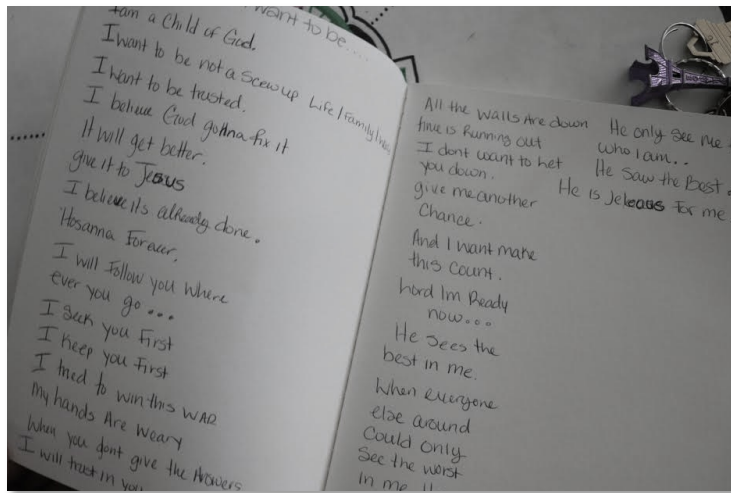 I want to be....
I am a Child of God.
I want to be not a Scew up Life/Family/
I want to be trusted.
I believe God gotna fix it
It will get better.
give it to Jesus
I believe its already done.
Hosanna Forever.
I will Follow you where
ever you go...
I Seek you First
I Keep you First
I tried to win this WAR
my hands Are weary
When you dont give the Answers
I will trust in you
All the walls Are down
time is Running out
I dont want to let
you down.
give me another
Chance.
And I want make
this Count.
Lord Im Ready
now...
He Sees the
best in me.
When everyone
else around
Could only
See the worst
in me !!
He only see me
who I am..
He Saw the Best.
He is Jeleous for me